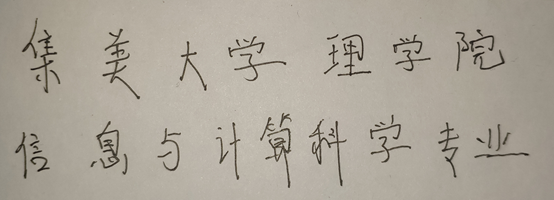 集美大学 理学院
信息与计算科学专业